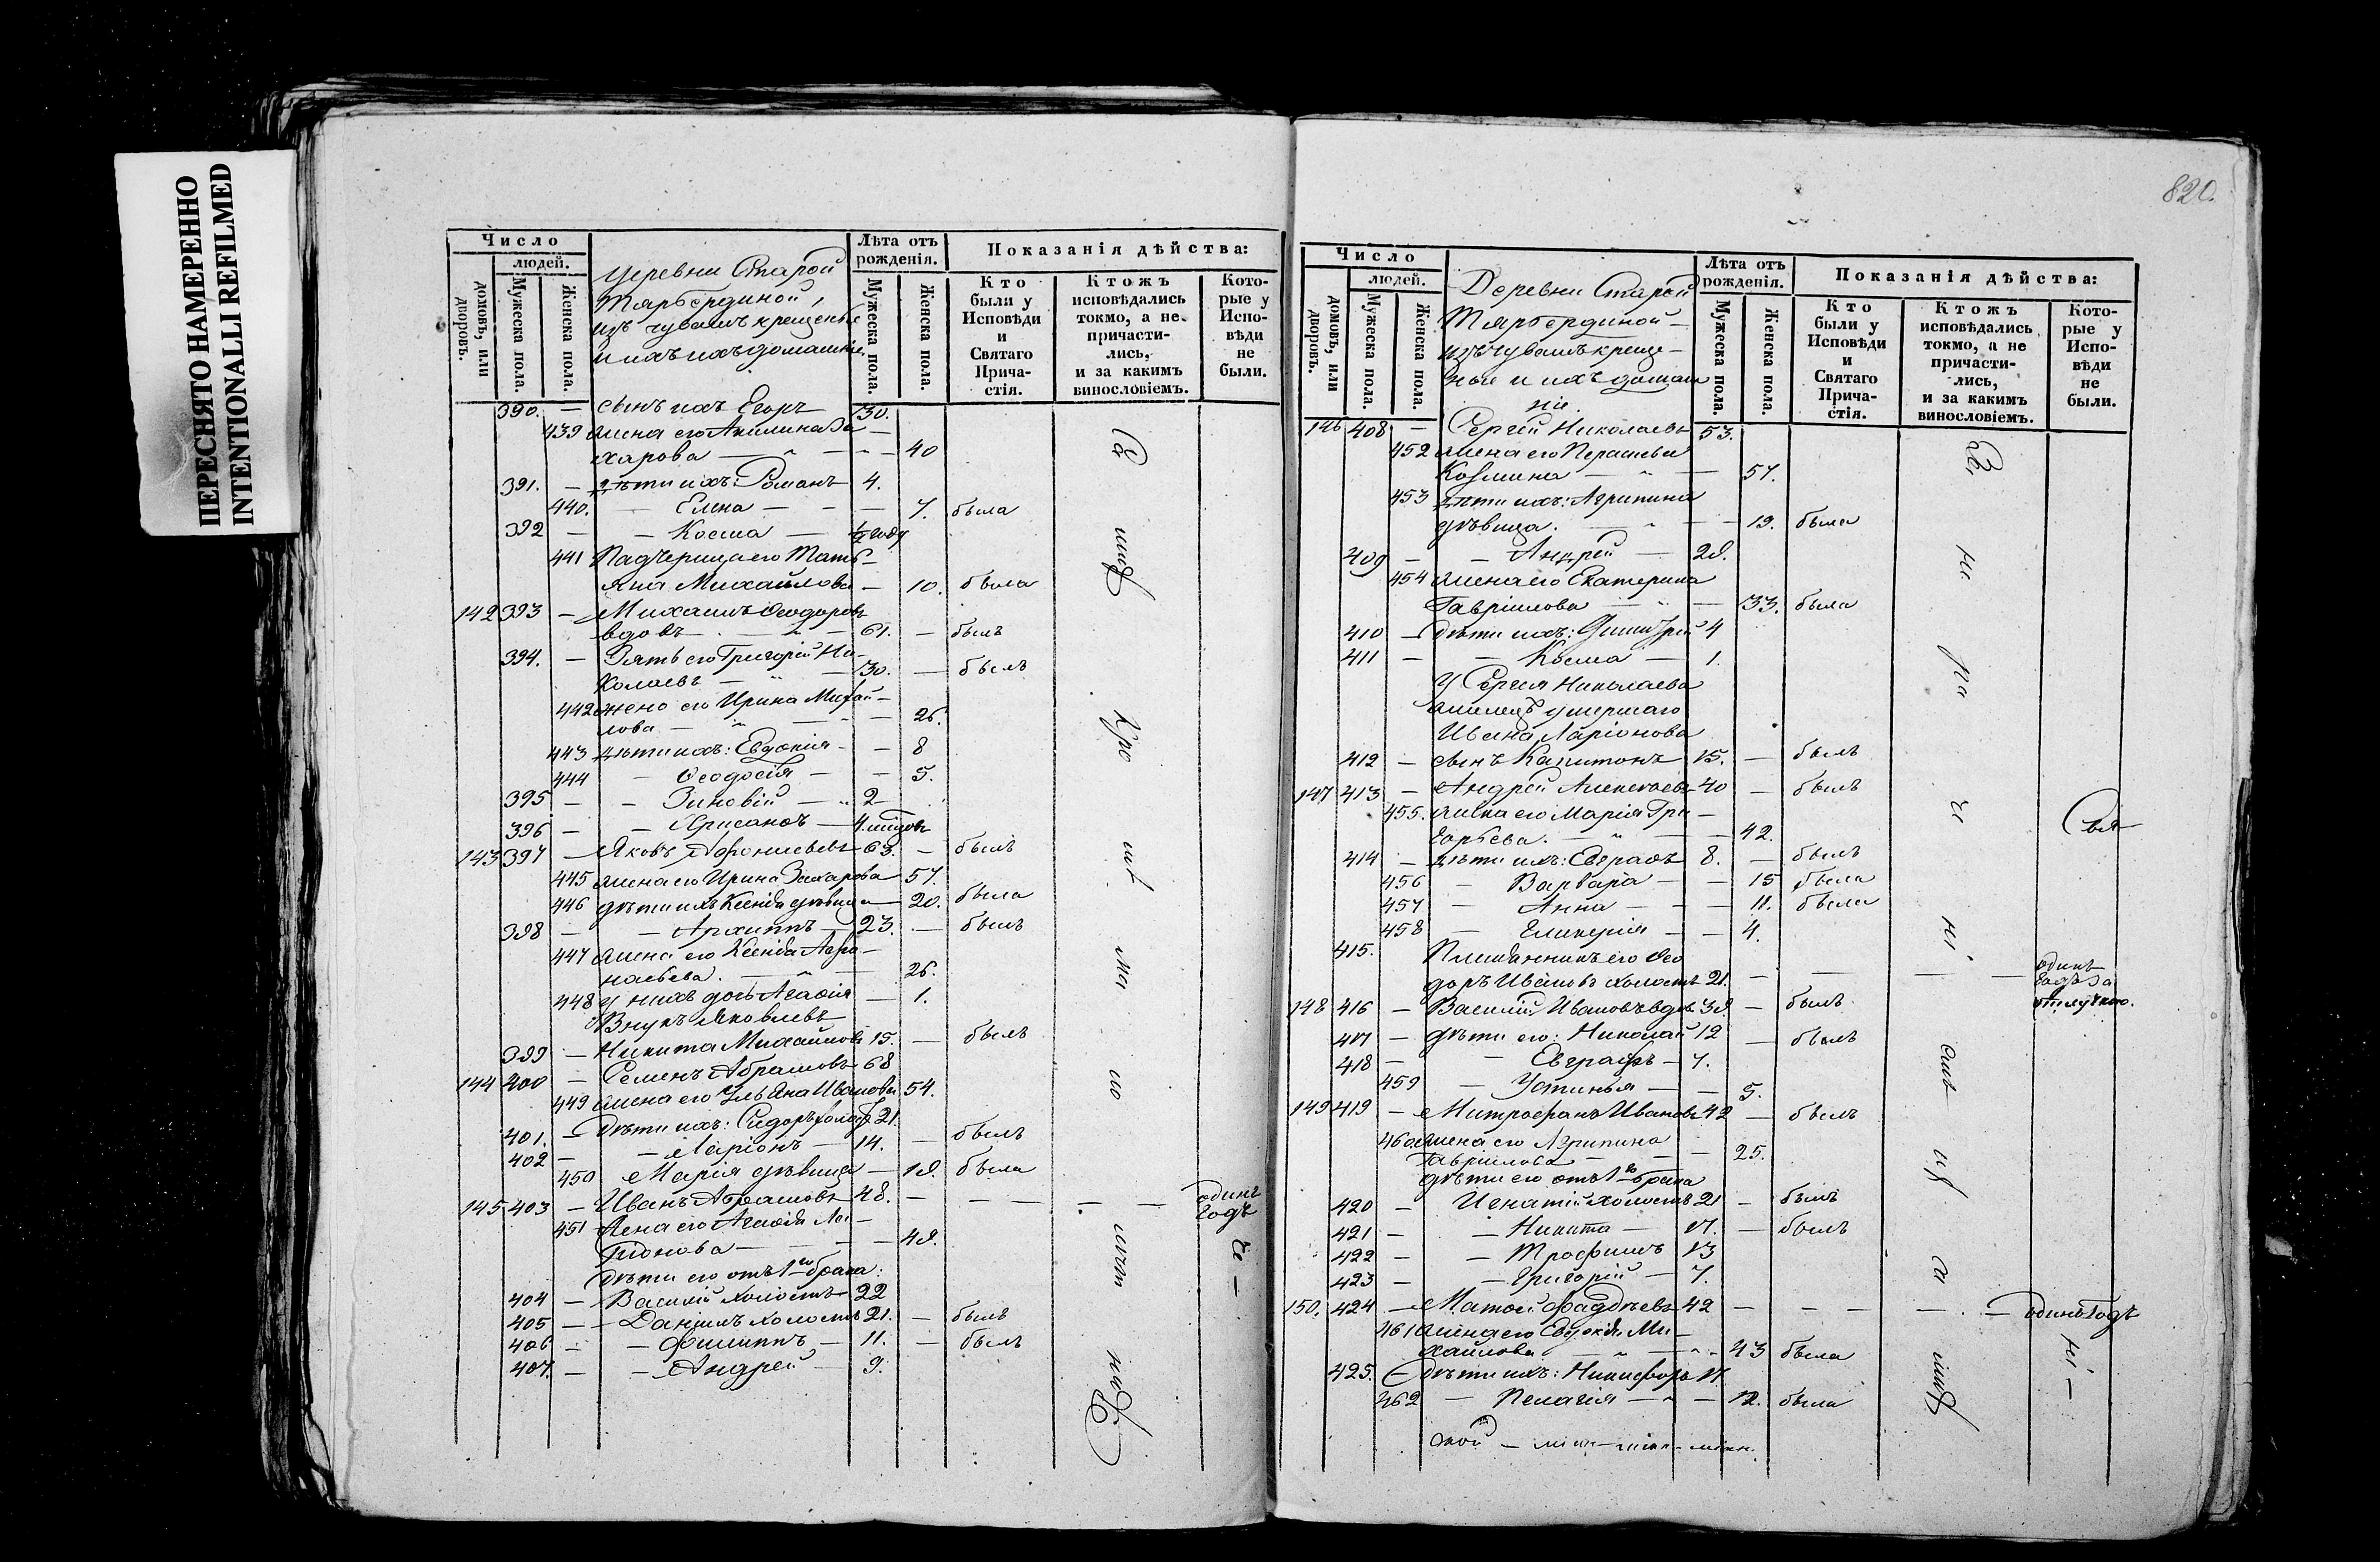 ПЕРЕСНЯТО НАМЕРЕННО
INTENTIONALLI REFILMED
820.
Число
людей.
домовъ, или дворовъ.
Мужеска пола.
Женска пола.
Деревни Старой
Тярбердиной,
изъ чувашъ крещеные
и ихъ ихъ домашніе.
Лѣта отъ рожденія.
Мужеска пола.
Женска пола.
Показанія дѣйства:
Кто были у Исповѣди и Святаго Причастія.
Ктожъ исповѣдались токмо, а не причастились, и за какимъ винословіемъ.
Которые у Исповѣди не были.
390. — сынъ ихъ Егоръ 30.
439 жена его Акилина За
харова — 40
391. — дѣти ихъ: Романъ 4.
440. — Елена — 7. была
392 — Косма — ½ году
441 Падчерица его Тать
яна Михайлова — 10. была
142 393 — Михаилъ Ѳеодоровъ
вдовъ — 61. — былъ
394. — Зять его Григорій Ни
колаевъ — 30. — былъ
442 жено его Ирина Михай
лова — 26.
443 дѣти ихъ: Евдокія — 8
444 — Ѳеодосія — 5.
395 — Зиновій — 2
396 —
143 397 — Яковъ 63. — былъ
445 жена его Ирина Захарова 57.
446 дѣти ихъ Ксенія дѣвица 20. была
398 — Архиппъ — 23. — былъ
447 жена его Ксенія Аѳа
насьева. — 26.
448 у нихъ дочь Агаѳія — 1.
Внукъ Яковлевъ
399 — Никита Михайловъ 15. — былъ
144 400 — Семенъ Абрамовъ 68
449 жена его Ульяна Иванова 54.
401. — Дѣти ихъ: Сидоръ холостъ 21.
402 — Ларіонъ — 14. — былъ
450 Марія дѣвица — 18. была
145 403 — Иванъ Абрамовъ 48. — одинъ
годъ
451 Жена его Агаѳія Ла
ріонова — 48.
Дѣти его отъ 1го брака:
404 — Василій холостъ 22
405 — Даніилъ холостъ 21. — былъ
406 — Филиппъ — 11. — былъ
407. — Андрей — 9.
Число
людей.
домовъ, или дворовъ.
Мужеска пола.
Женска пола.
Деревни Старой
Тярбердиной
изъ чувашъ креще
ные и ихъ домаш
ніе.
Лѣта отъ рожденія.
Мужеска пола.
Женска пола.
Показанія дѣйства:
Кто были у Исповѣди и Святаго Причастія.
Ктожъ исповѣдались токмо, а не причастились, и за какимъ винословіемъ.
Которые у Исповѣди не были.
146 408 — Сергѣй Николаевъ 53.
452 жена его
Козмина — 57.
453 дѣти ихъ: Агрипина
дѣвица. — 19. была
409 — Андрей — 28.
454 жена его Екатерина
Гавріилова — 33. была
410 — дѣти ихъ: Димитрій 4
411 — Косма — 1.
У Сергея Николаева
жилецъ умершаго
Ивана Ларіонова
412 — сынъ Капитонъ 15. — былъ
147 413 — Андрей Алексѣевъ 40 — былъ
455. жена его Марія Гри
горьева. — 42.
414 — дѣти ихъ: Евграфъ 8. — былъ
456 — Варвара — 15 была
457 — Анна — 11. была
458 — Гликерія — 4.
415. Племянникъ его Ѳео
доръ Ивановъ холостъ 21. — одинъ
годъ за
отлучкою.
148 416 — Василій Ивановъ вдовъ 38 — былъ
417 — дѣти его: Николай 12 — былъ
418 — Евграфъ — 7.
459 — Устинья — 5.
149 419 — Митрофанъ Ивановъ 42 — былъ
460 жена его Агрипина
Гавріилова — 25.
дѣти его отъ 1го брака
420 — Игнатій холостъ 21 — былъ
421 — Никита — 17. — былъ
422 — Трофимъ 13
423 — Григорій — 7.
150. 424 — Матвей Фаддѣевъ 42 — одинъ годъ
461 жена его Евдокія Ми
хайлова — 43 была
425. дѣти ихъ: Никифоръ 17.
462 — Пелагія — 12. была